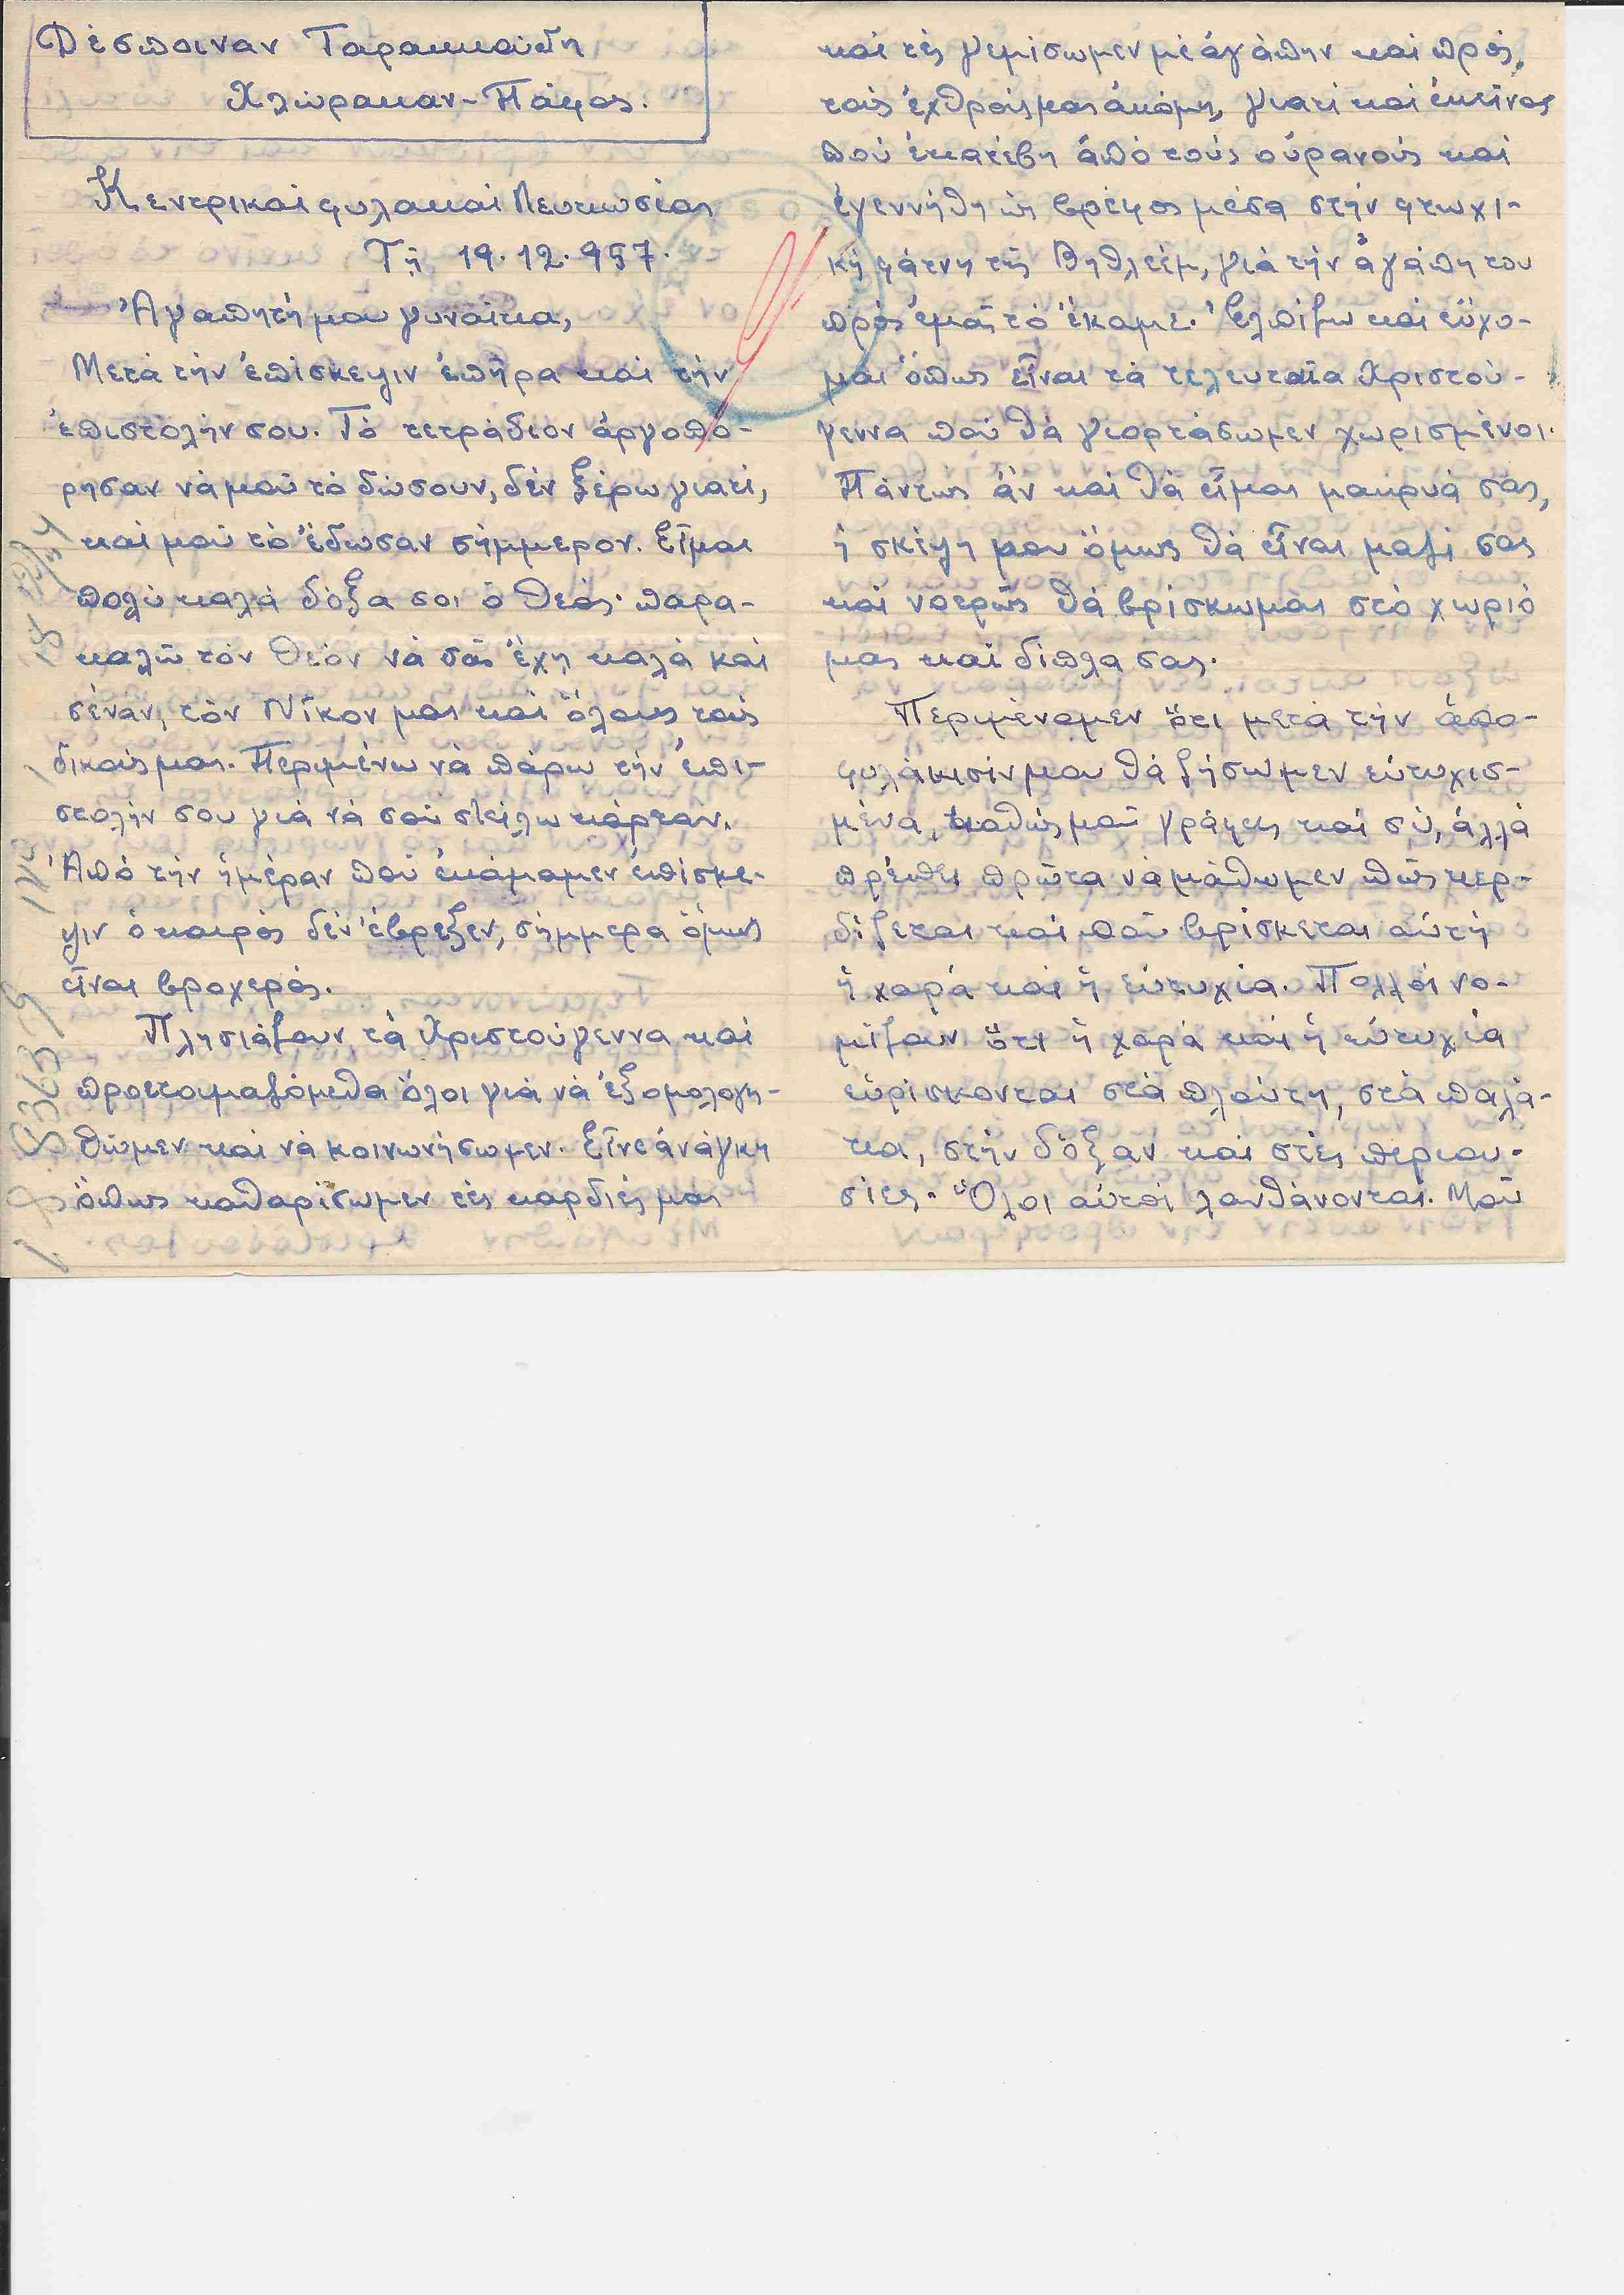 Δέσποιναν Ταρακκούδη
Χλώρακαν-Πάφος.
Κεντρικαί φυλακαί Λευκωσίας
Τῇ 19.12.957.
Ἀγαπητή μου γυναῖκα,
Μετά τήν ἐπίσκεψιν ἐπῆρα καί τήν
ἐπιστολήν σου. Τό τετράδιον ἀργοπό-
ρησαν νά μοῦ τό δώσουν, δέν ξέρω γιατί,
καί μοῦ τό ἔδωσαν σήμμερον. Εἶμαι
πολύ καλά δόξα σοι ὁ Θεός· παρα-
καλῶ τόν Θεόν νά σᾶς ἔχῃ καλά καί
σέναν, τόν Νῖκον μας καί ὅλους τούς
δικούς μας. Περιμένω νά πάρω τήν ἐπι-
στολήν σου γιά νά σοῦ στείλω κάρταν.
Ἀπό τήν ἡμέραν πού ἐκάμαμεν ἐπίσκε-
ψιν ὁ καιρός δέν ἔβρεξεν, σήμμερα ὅμως
εἶναι βροχερός.
Πλησιάζουν τά Χριστούγεννα καί
προετοιμαζόμεθα ὅλοι γιά νά ἐξομολογη-
θῶμεν καί νά κοινωνήσωμεν. Εἶνε ἀνάγκη
ὅπως καθαρίσωμεν τές καρδιές μας
καί τές γεμίσωμεν μέ ἀγάπην καί πρός
τούς ἐχθρούς μας ἀκόμη, γιατί καί ἐκεῖνος
πού ἐκατέβη ἀπό τούς οὐρανούς καί
ἐγεννήθη ὡς βρέφος μέσα στήν φτωχι-
κή φάτνη τῆς Βηθλεέμ, γιά τήν ἀγάπη του
πρός ἐμᾶς τό ἔκαμε. Ἐλπίζω καί εὔχο-
μαι ὅπως εἶναι τά τελευταῖα Χριστού-
γεννα πού θά γιορτάσωμεν χωρισμένοι.
Πάντως ἄν καί θά εἶμαι μακρυά σας,
ἡ σκέψη μου ὅμως θά εἶναι μαζί σας
καί νοερῶς θά βρίσκωμαι στό χωριό
μας καί δίπλα σας.
Περιμένομεν ὅτι μετά τήν ἀπο-
φυλάκισίν μου θά ζήσωμεν εὐτυχισ-
μένα, καθώς μοῦ γράφεις καί σύ, ἀλλά
πρέπει πρῶτα νά μάθωμεν πῶς κερ-
δίζεται καί ποῦ βρίσκεται αὐτή
ἡ χαρά καί ἡ εὐτυχία. Πολλοί νο-
μίζουν ὅτι ἡ χαρά καί ἡ εὐτυχία
εὑρίσκονται στά πλούτη, στά παλά-
τια, στήν δόξαν καί στές περιου-
σίες. Ὅλοι αὐτοί λανθάνονται. Μοῦ